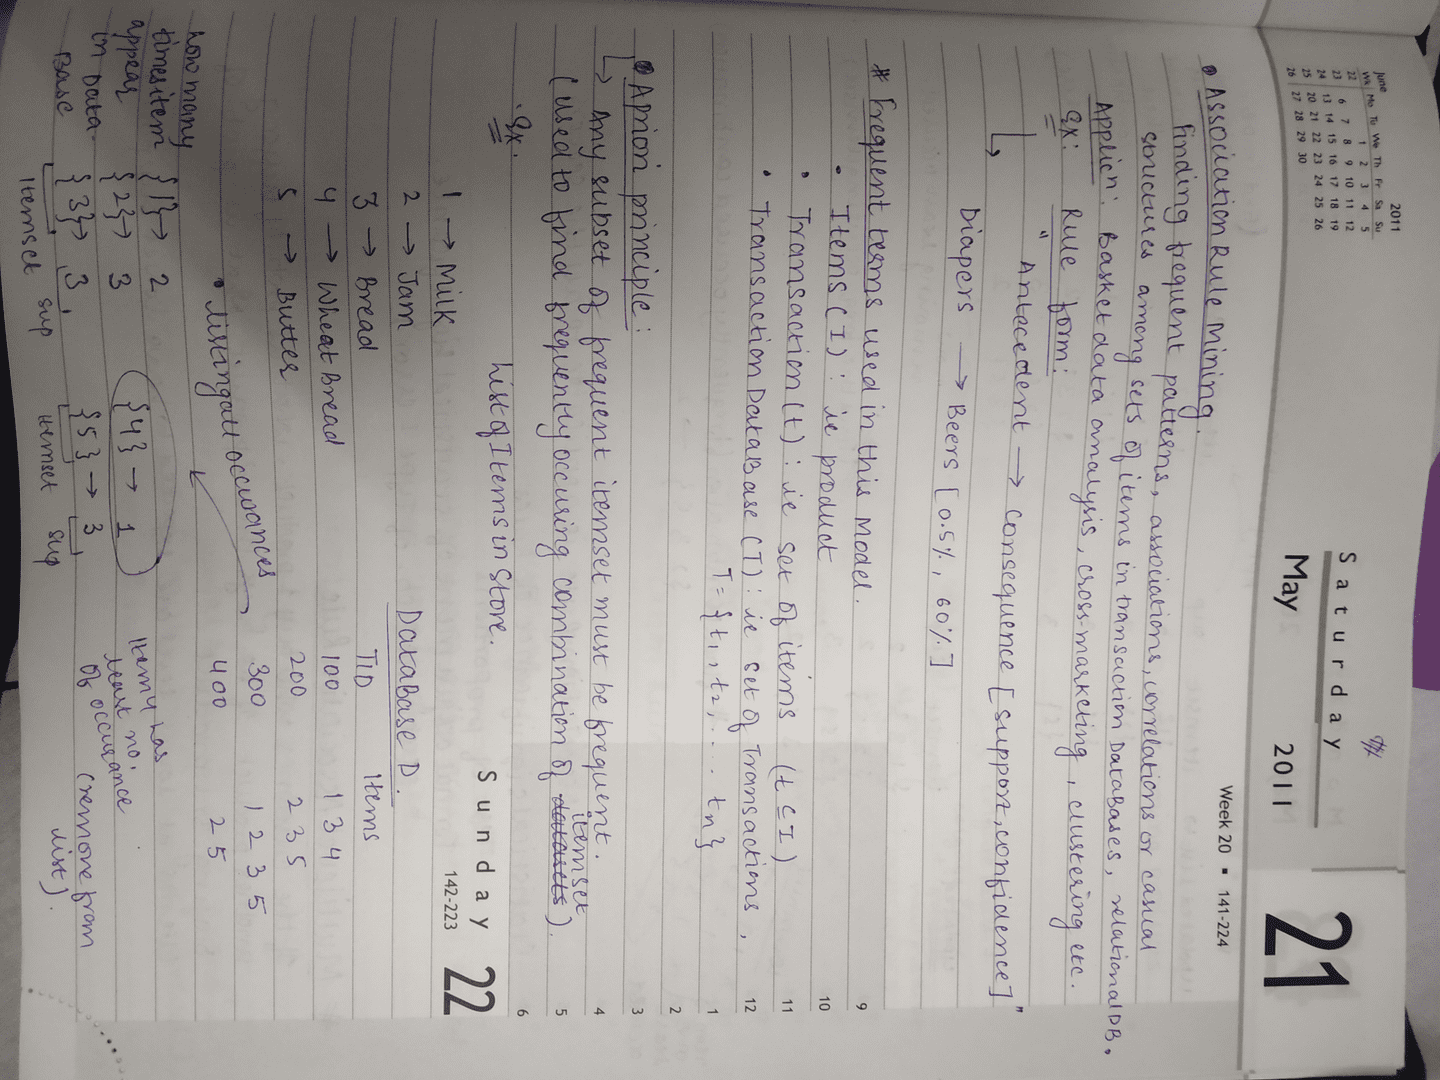 2011
June
Wk Mo Tu We Th Fr Sa Su
22 1 2 3 4 5
23 6 7 8 9 10 11 12
24 13 14 15 16 17 18 19
25 20 21 22 23 24 25 26
26 27 28 29 30
Saturday
May 2011
21
Week 20 • 141-224
• Association Rule Mining.
Finding frequent patterns, associations, correlations or casual
structures among sets of items in transaction DataBases, relational DB.
Applicn: Basket data analysis, cross-marketing, clustering etc.
Ex: Rule form:
" Antecedent → consequence [support, confidence] "
↳ Diapers → Beers [0.5%, 60%]
* Frequent terms used in this Model.
• Items (I) : ie product
• Transaction (t) : ie set of items (t ⊆ I)
• Transaction DataBase (T) : ie set of Transactions,
T = {t1, t2, .... tn}
• Apriori principle:
↳ Any subset of frequent itemset must be frequent.
(used to find frequently occuring combination of datasets itemset).
Ex. List of Items in Store.
9
10
11
12
1
2
3
4
5
6
Sunday 22
142-223
1 → Milk
2 → Jam
3 → Bread
4 → Wheat Bread
5 → Butter
DataBase D.
TID Items
100 1 3 4
200 2 3 5
300 1 2 3 5
400 2 5
• listing all occurances
how many
times item
appear
in Data-
Base
{1} → 2
{2} → 3
{3} → 3,
Itemset sup
{4} → 1
{5} → 3
Itemset sup
Item 4 has
least no.
of occurance
(remove from
list).